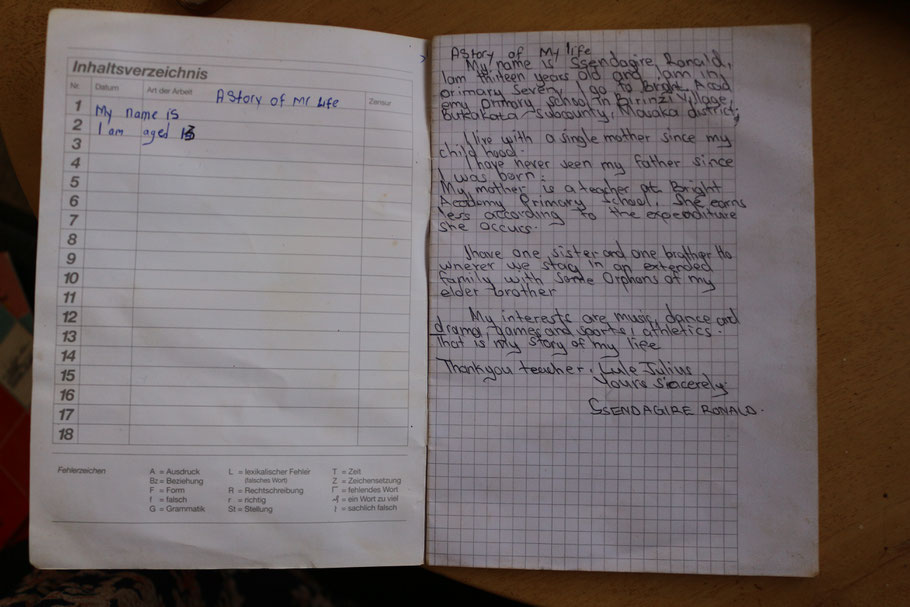 Inhaltsverzeichnis
Nr. Datum Art der Arbeit Zensur
A Story of Mr Life
1 My name is
2 I am aged 13
3
4
5
6
7
8
9
10
11
12
13
14
15
16
17
18
Fehlerzeichen
A = Ausdruck
Bz = Beziehung
F = Form
f = falsch
G = Grammatik
L = lexikalischer Fehler
(falsches Wort)
R = Rechtschreibung
r = richtig
St = Stellung
T = Zeit
Z = Zeichensetzung
Γ = fehlendes Wort
= ein Wort zu viel
= sachlich falsch
A story of My life
My name is Ssendagire Ronald,
I am thirteen years old and I am in
primary seven. I go to Bright Acad
emy primary school in Birinzi Village,
Bukakata-subcounty, Masaka district;
I live with a single mother since my
child hood.
I have never seen my father since
I was born.
My mother is a teacher at Bright
Academy Primary School. She earns
less according to the expenditure
she accurs.
I have one sister and one brother Ho
wnerer we stay in an extended
family with some Orphans of my
elder brother
My interests are music, dance and
drama, games and sports, athletics.
That is my story of my life
Thank you teacher. Lule Julius
Yours sincerely
SSENDAGIRE RONALD.